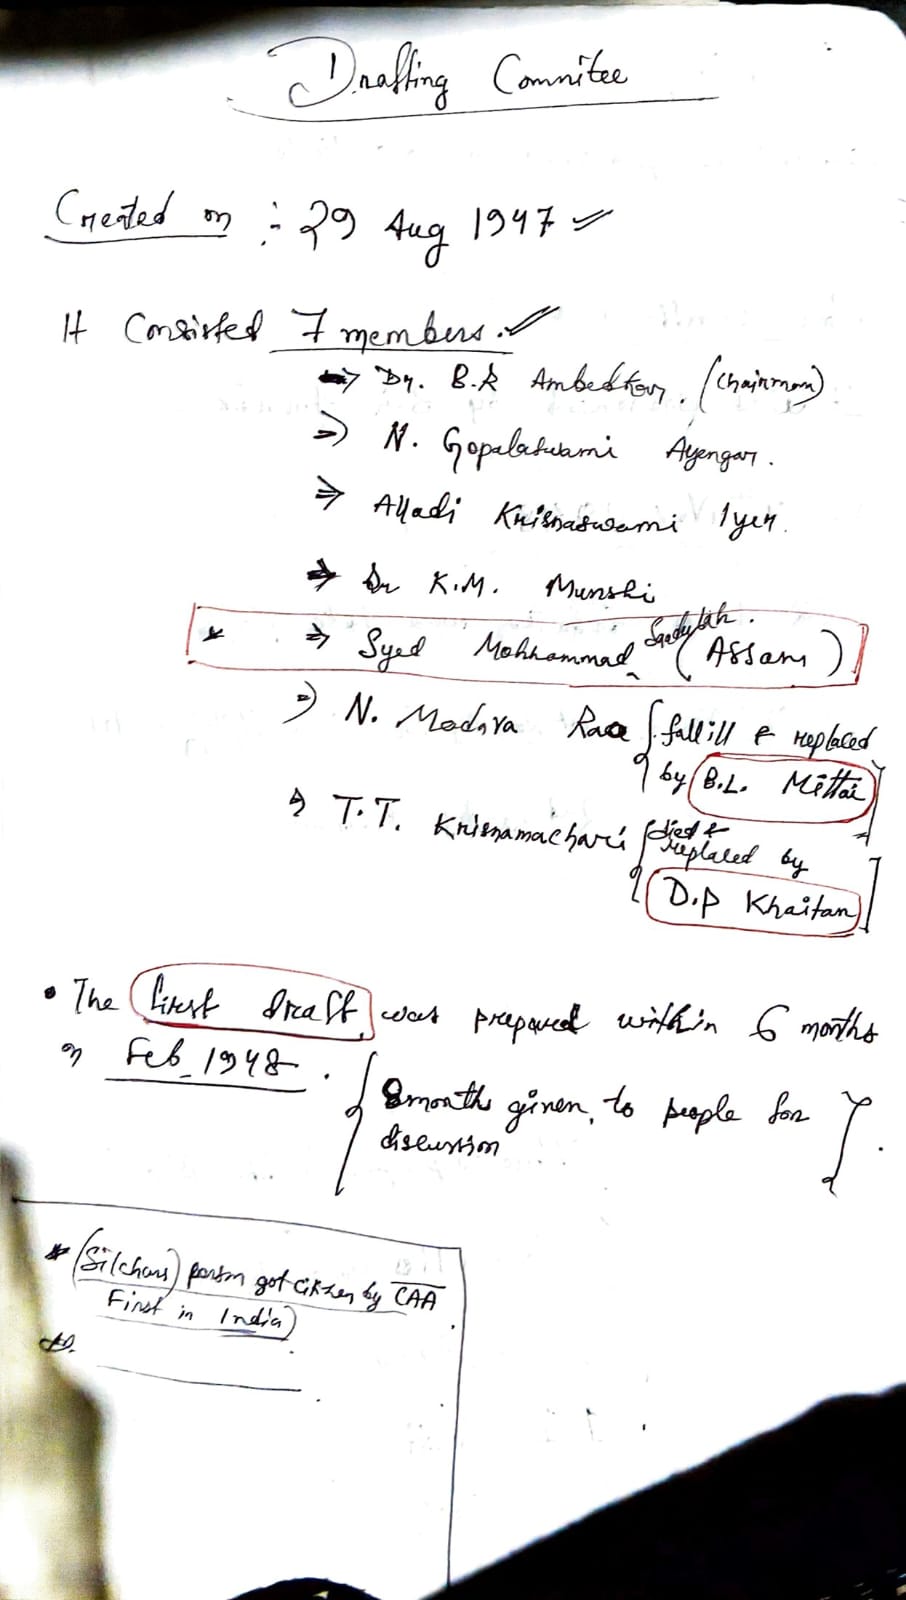 Drafting Commitee
Created on :- 29 Aug 1947
It Consisted 7 members.
⇒ Dr. B.R Ambedkar. (Chairman)
⇒ N. Gopalaswami Ayengar.
⇒ Alladi Krisnaswami Iyer.
⇒ Dr K.M. Munshi
* ⇒ Syed Mohhammad Saadullah. (Assam)
⇒ N. Madava Rao { fall ill & replaced
by B.L. Mittai
⇒ T.T. Krisnamachari { died &
replaced by
D.P Khaitan
• The first draft was prepared within 6 months
on Feb 1948. { 8 months given to people for
discussion }.
* (Silchar) person got citizen by CAA
First in India)